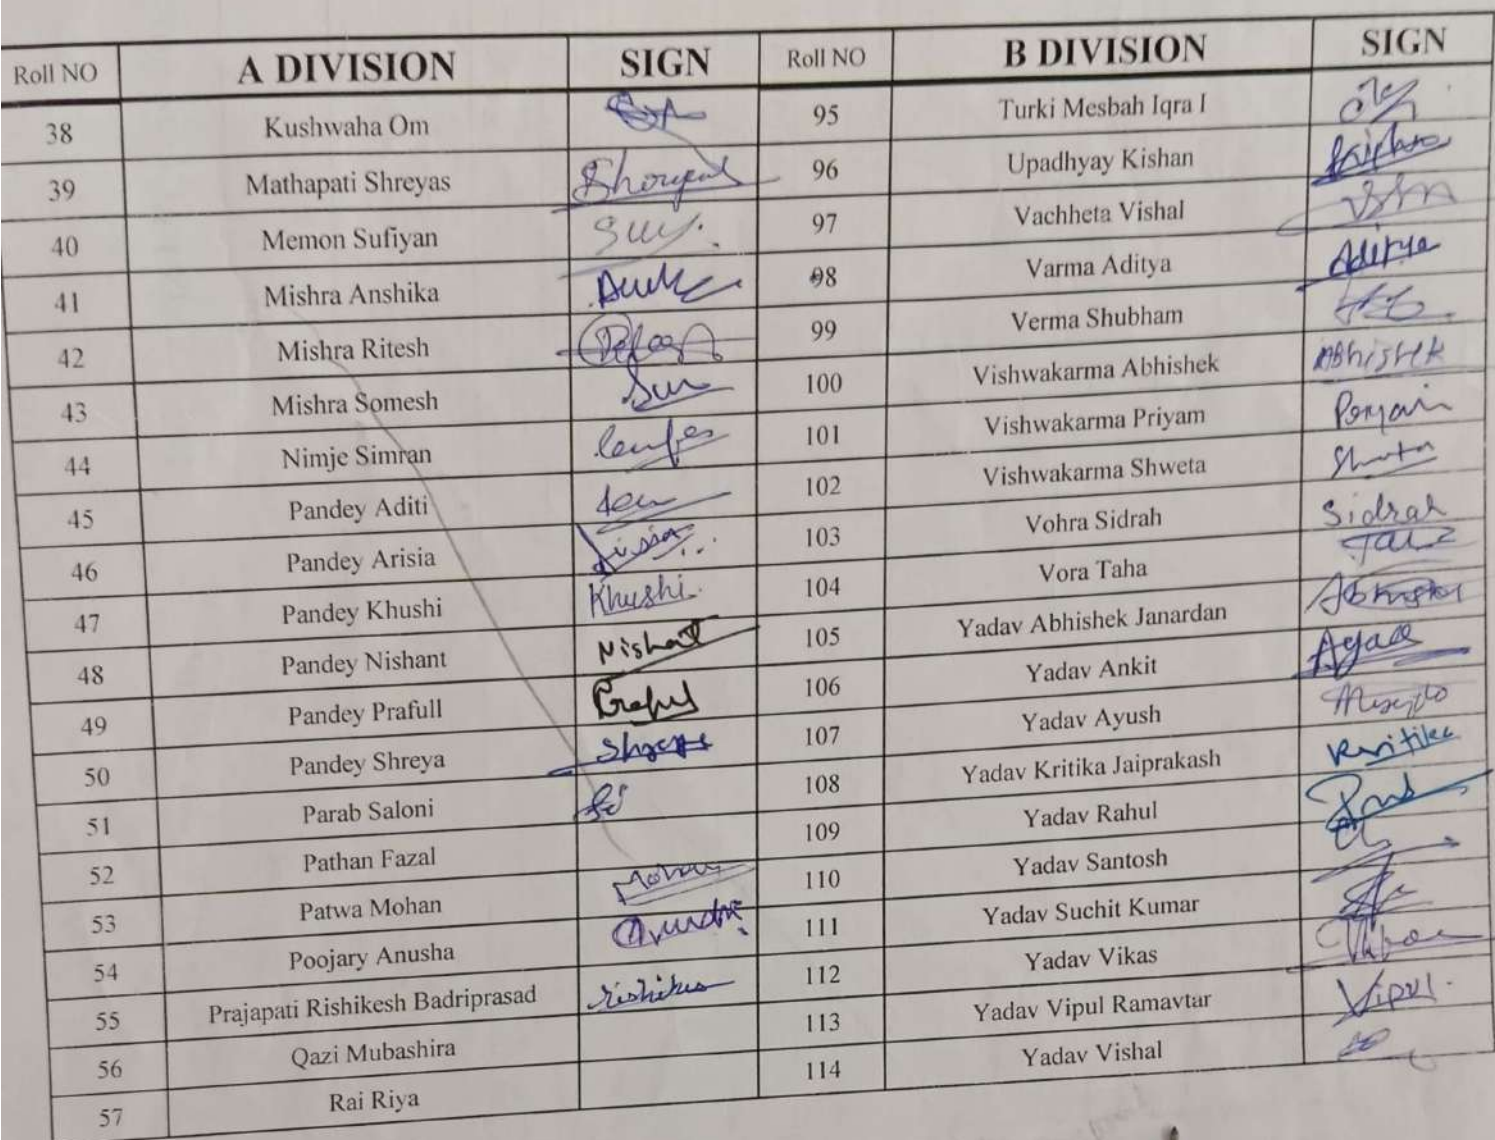 Roll NO A DIVISION SIGN Roll NO B DIVISION SIGN
38 Kushwaha Om 95 Turki Mesbah Iqra I
39 Mathapati Shreyas 96 Upadhyay Kishan
40 Memon Sufiyan 97 Vachheta Vishal
41 Mishra Anshika 98 Varma Aditya Aditya
42 Mishra Ritesh 99 Verma Shubham
43 Mishra Somesh 100 Vishwakarma Abhishek Abhishek
44 Nimje Simran 101 Vishwakarma Priyam
45 Pandey Aditi 102 Vishwakarma Shweta
46 Pandey Arisia 103 Vohra Sidrah Sidrah
47 Pandey Khushi Khushi 104 Vora Taha
48 Pandey Nishant Nishant 105 Yadav Abhishek Janardan
49 Pandey Prafull 106 Yadav Ankit
50 Pandey Shreya 107 Yadav Ayush
51 Parab Saloni 108 Yadav Kritika Jaiprakash Kritika
52 Pathan Fazal 109 Yadav Rahul
53 Patwa Mohan Mohan 110 Yadav Santosh
54 Poojary Anusha 111 Yadav Suchit Kumar
55 Prajapati Rishikesh Badriprasad 112 Yadav Vikas
56 Qazi Mubashira 113 Yadav Vipul Ramavtar Vipul
57 Rai Riya 114 Yadav Vishal